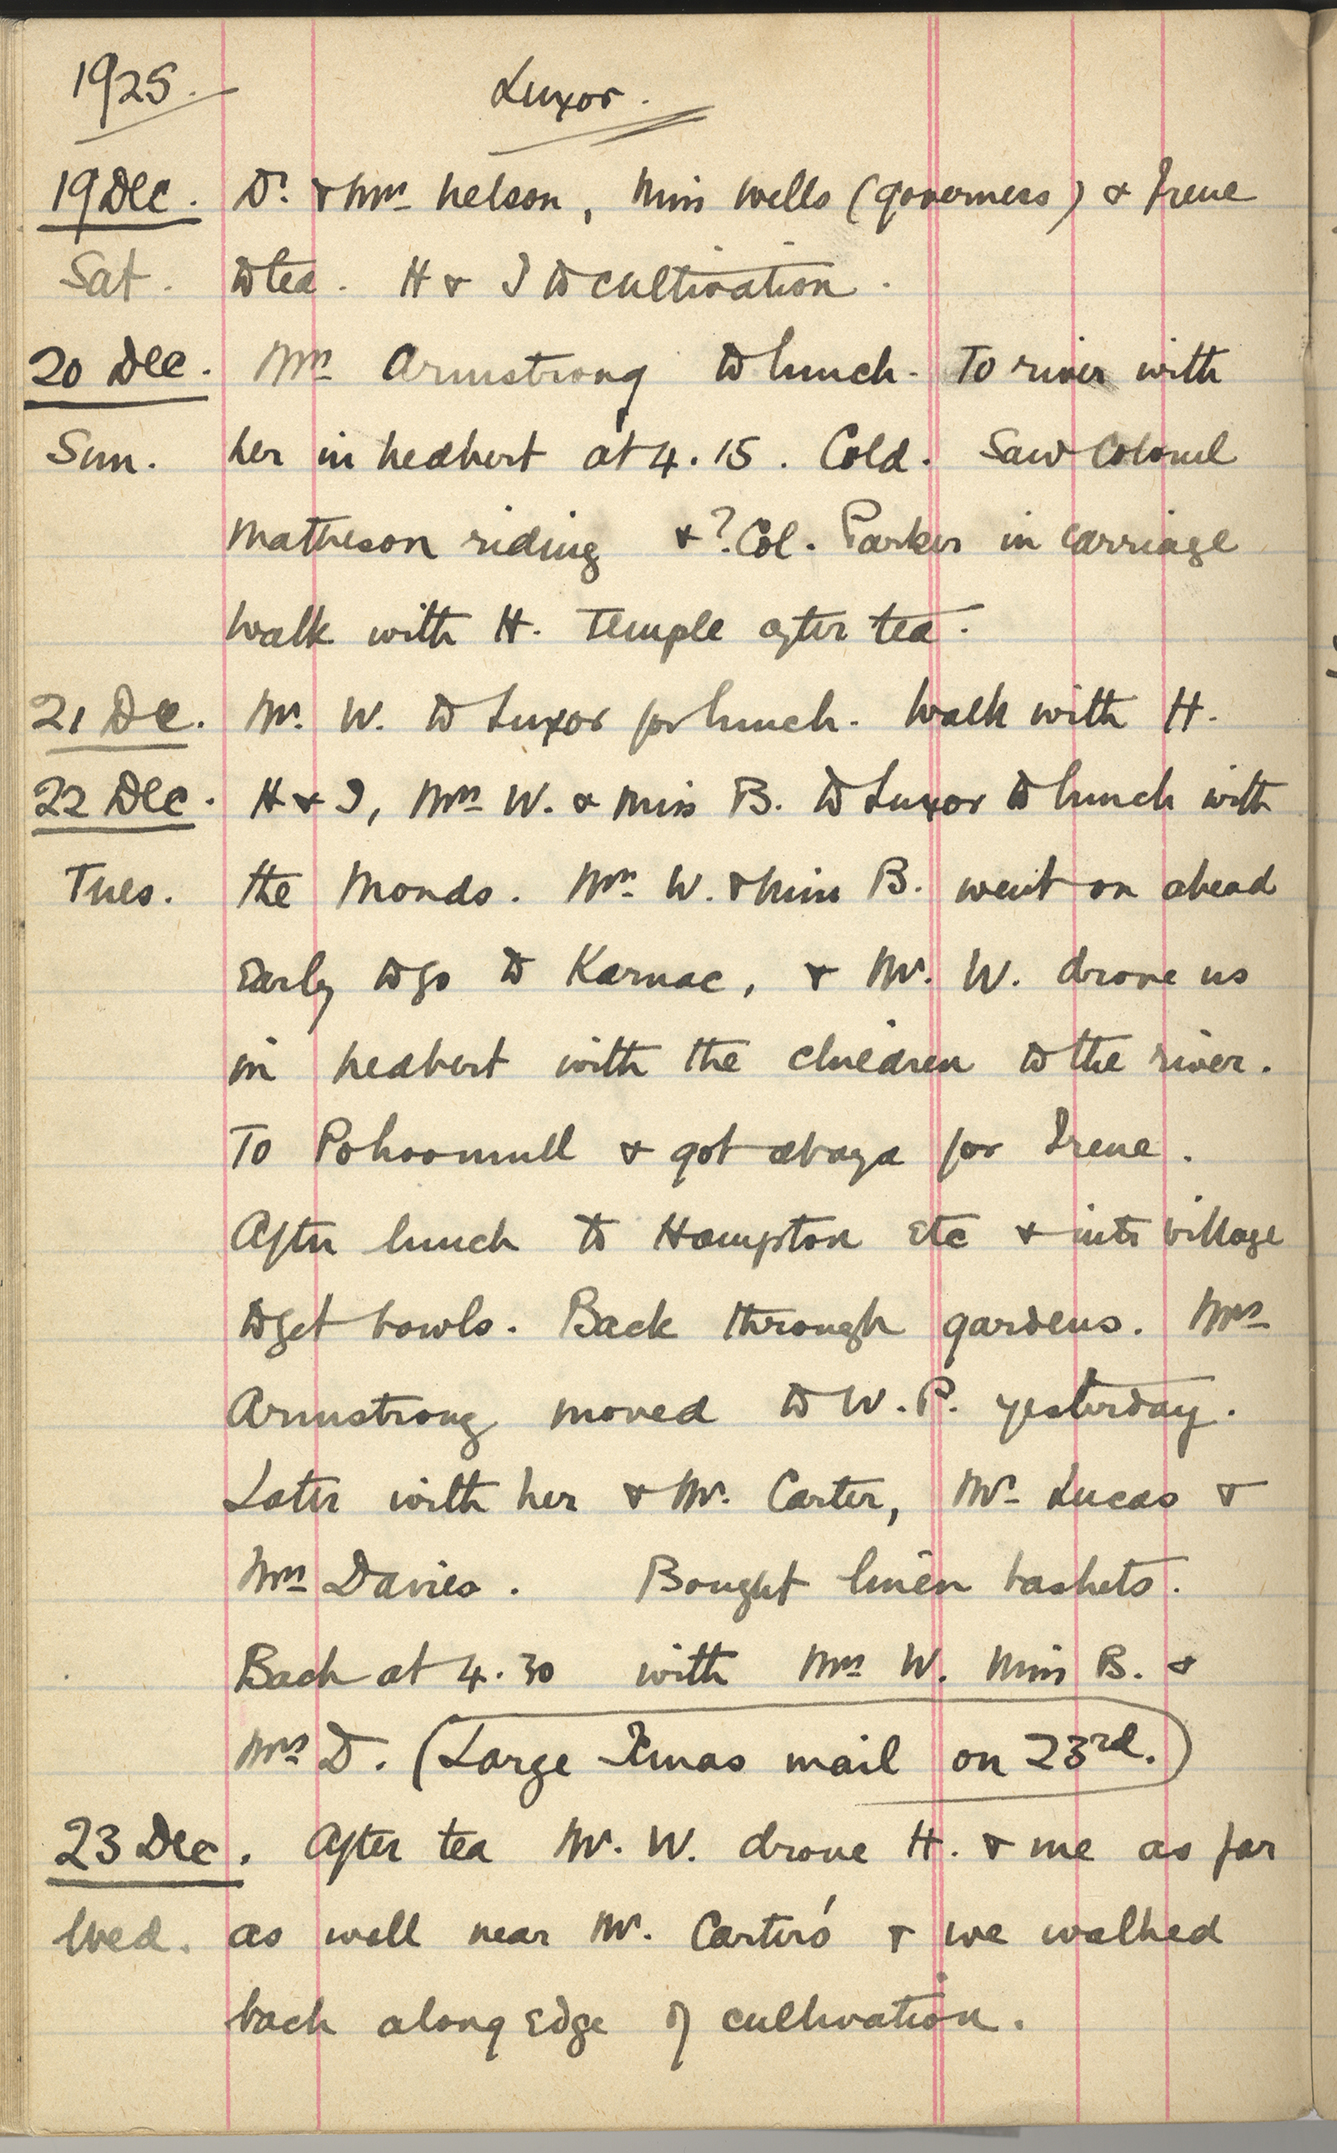 1925. Luxor.
19 Dec. Dr. & Mrs Nelson, Miss Wells (governess) & Irene
Sat. to tea. H & I to cultivation.
20 Dec. Mrs Armstrong to lunch. To river with
Sun. her in hedbert at 4.15. Cold. Saw Colonel
Matheson riding & ? Col. Parker in carriage
Walk with H. Temple after tea.
21 Dec. Mr. W. to Luxor for lunch. Walk with H.
22 Dec. H & I, Mrs W. & Miss B. to Luxor to lunch with
Tues. the Monds. Mrs W. & Miss B. went on ahead
early to go to Karnac, & Mr. W. drove us
in hedbert with the children to the river.
To Pohoomull & got abaya for Irene.
After lunch to Hampton etc & into village
to get bowls. Back through gardens. Mrs
Armstrong moved to W.P. yesterday.
Later with her & Mr. Carter, Mr. Lucas &
Mrs Davies. Bought linen baskets.
Back at 4.30 with Mrs W. Miss B. &
Mrs D. (Large Xmas mail on 23rd.)
23 Dec. After tea Mr. W. drove H. & me as far
Wed. as well near Mr. Carter's & we walked
back along edge of cultivation.